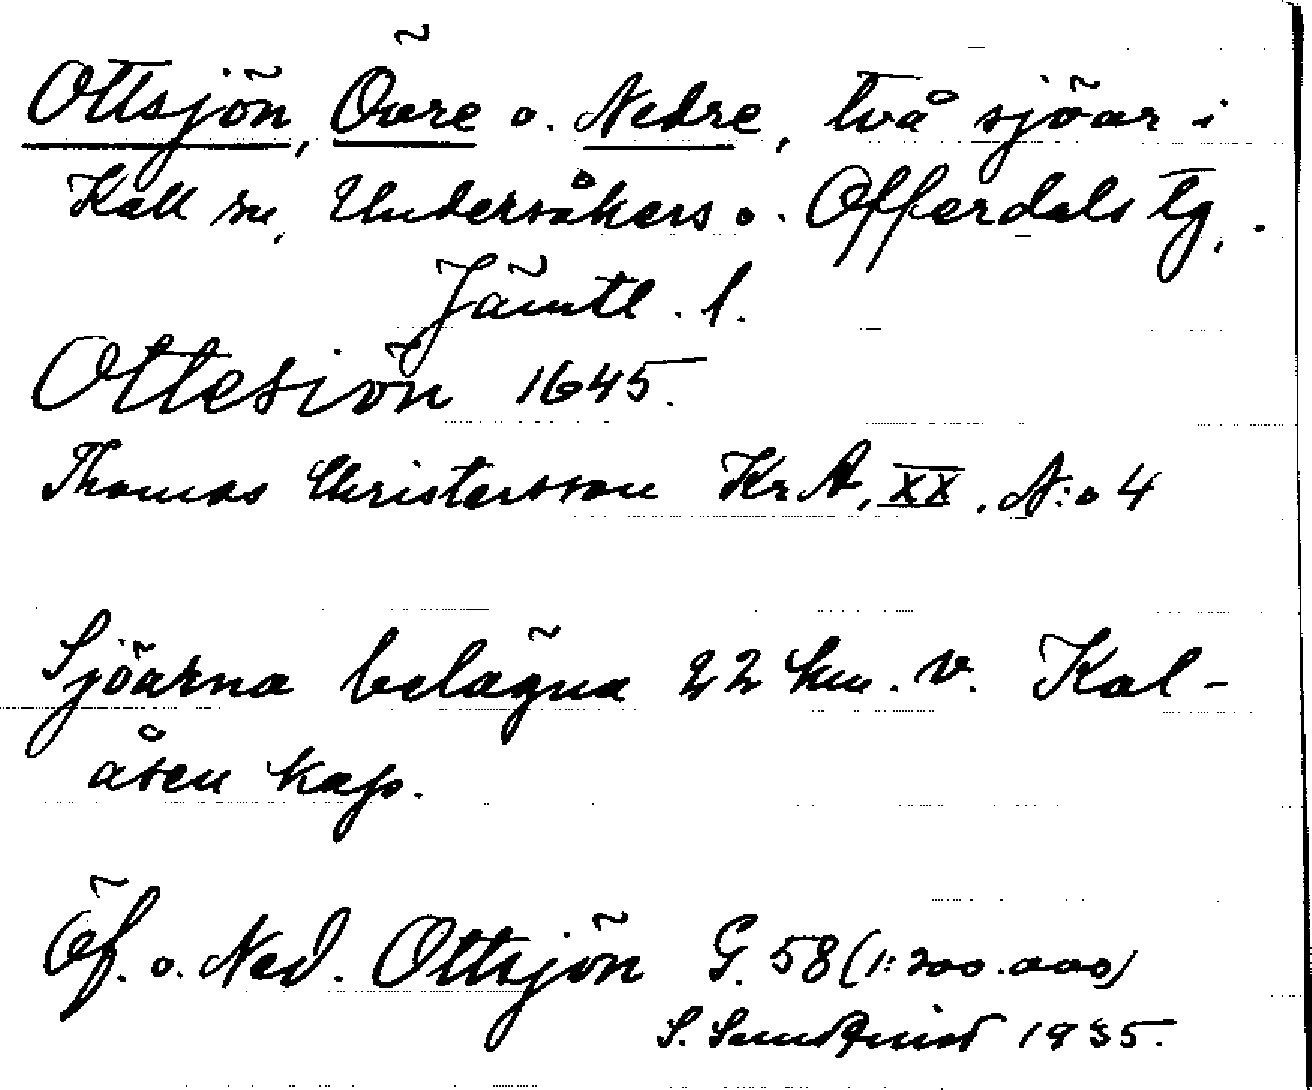 Ottsjön, Övre o. Nedre, två sjöar i
Kall sn, Undersåkers o. Offerdals tg,.
Jämtl. l.
Ottesiön 1645.
Thomas Christersson KrA, XX, N:o 4
Sjöarna belägna 22 km. v. Kal-
åsen kap.
Öf. o. Ned. Ottsjön G. 58 (1:200.000)
S. Sundquist 1935.